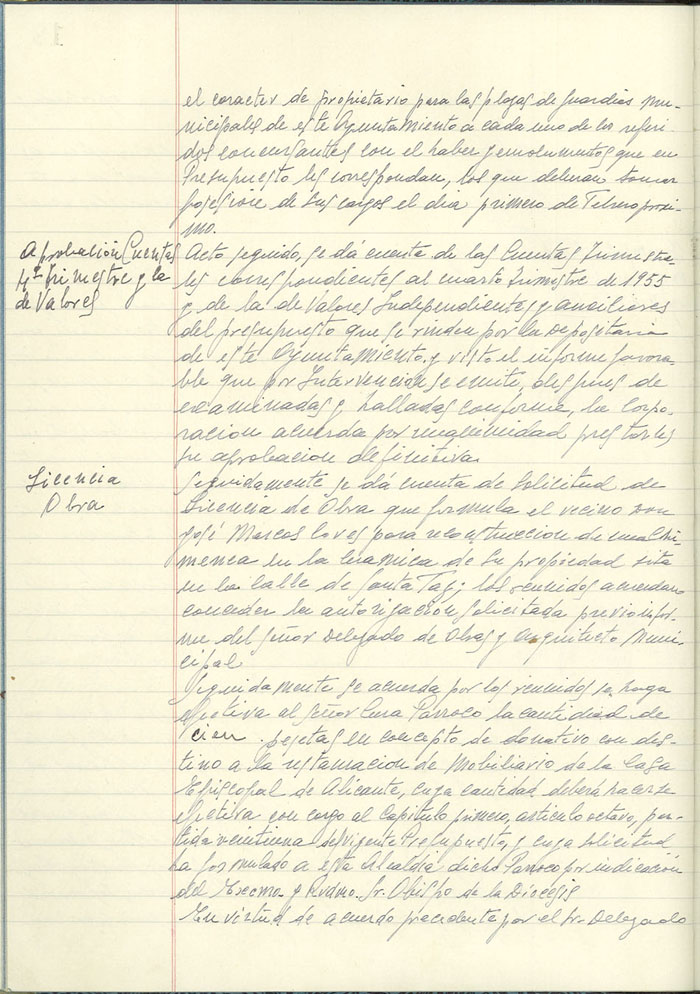 el caracter de propietario para las plazas de Guardias Mu-
nicipales de este Ayuntamiento a cada uno de los referi-
dos concursantes con el haber y emolumentos que en
Presupuesto les correspondan, los que deberan tomar
posesion de sus cargos el dia primero de Febrero proxi-
mo.
Aprobación Cuentas
4º trimestre y la
de Valores
Acto seguido, se dá cuenta de las Cuentas Trimestra-
les correspondientes al cuarto trimestre de 1955
y de la de Valores Independientes y auxiliares
del presupuesto que se rinden por la Depositaria
de este Ayuntamiento, y visto el informe favora-
ble que por Intervencion se emite, despues de
examinadas y halladas conforme, la Corpo-
racion acuerda por unanimidad prestarles
su aprobacion definitiva.
Licencia
Obra
Seguidamente se dá cuenta de Solicitud de
Licencia de Obra que formula el vecino Don
José Marcos Coves para reconstruccion de una Chi-
menea en la Ceramica de su propiedad sita
en la Calle de Santa ; los reunidos acuerdan
conceder la autorizacion solicitada previo infor-
me del Señor Delegado de Obras y Arquitecto Muni-
cipal.
Seguidamente se acuerda por los reunidos se haga
efectiva al Señor Cura Parroco la cantidad de
cien pesetas en concepto de donativo con des-
tino a la restauracion de Mobiliario de la Casa
Episcopal de Alicante, cuya cantidad deberá hacerse
efectiva con cargo al Capitulo primero, articulo octavo, par-
tida veintiuna del vigente Presupuesto, y cuya solicitud
ha formulado a esta Alcaldia dicho Parroco por indicación
del Excmo. y Rvdmo. Sr. Obispo de la Diocesis
En virtud de acuerdo precedente por el Sr. Delegado